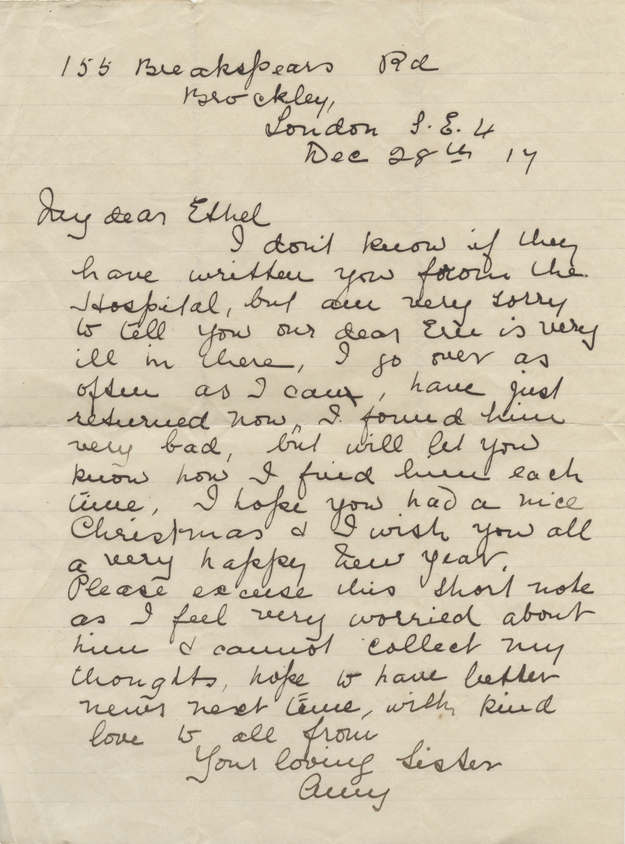 155 Breakspears Rd
Brockley,
London S.E.4
Dec 28th 17
My dear Ethel
I don't know if they
have written you from the
Hospital, but am very sorry
to tell you our dear Eric is very
ill in there, I go over as
often as I can, have just
returned now, I found him
very bad, but will let you
know how I find him each
time, I hope you had a nice
Christmas & I wish you all
a very happy New Year.
Please excuse this short note
as I feel very worried about
him & cannot collect my
thoughts, hope to have better
news next time, with kind
love to all from
Your loving Sister
Amy